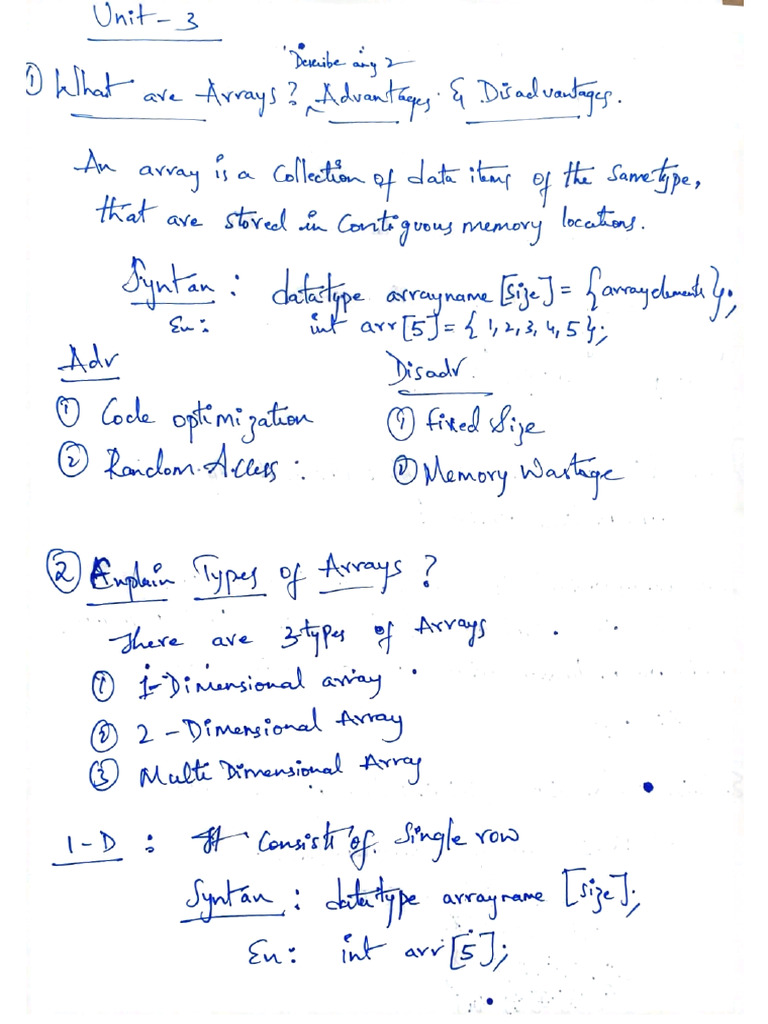 Unit - 3
Describe any 2
① What are Arrays? Advantages & Disadvantages.
An array is a collection of data items of the same type,
that are stored in contiguous memory locations.
Syntax : datatype arrayname [size] = {array elements};
Ex : int arr [5] = { 1, 2, 3, 4, 5 };
Adv Disadv.
① Code optimization ① fixed size
② Random Access : ② Memory Wastage
② Explain Types of Arrays ?
There are 3 types of Arrays
① 1-Dimensional array
② 2 - Dimensional Array
③ Multi Dimensional Array
1-D : It consists of single row
Syntax : datatype arrayname [size];
Ex : int arr [5];